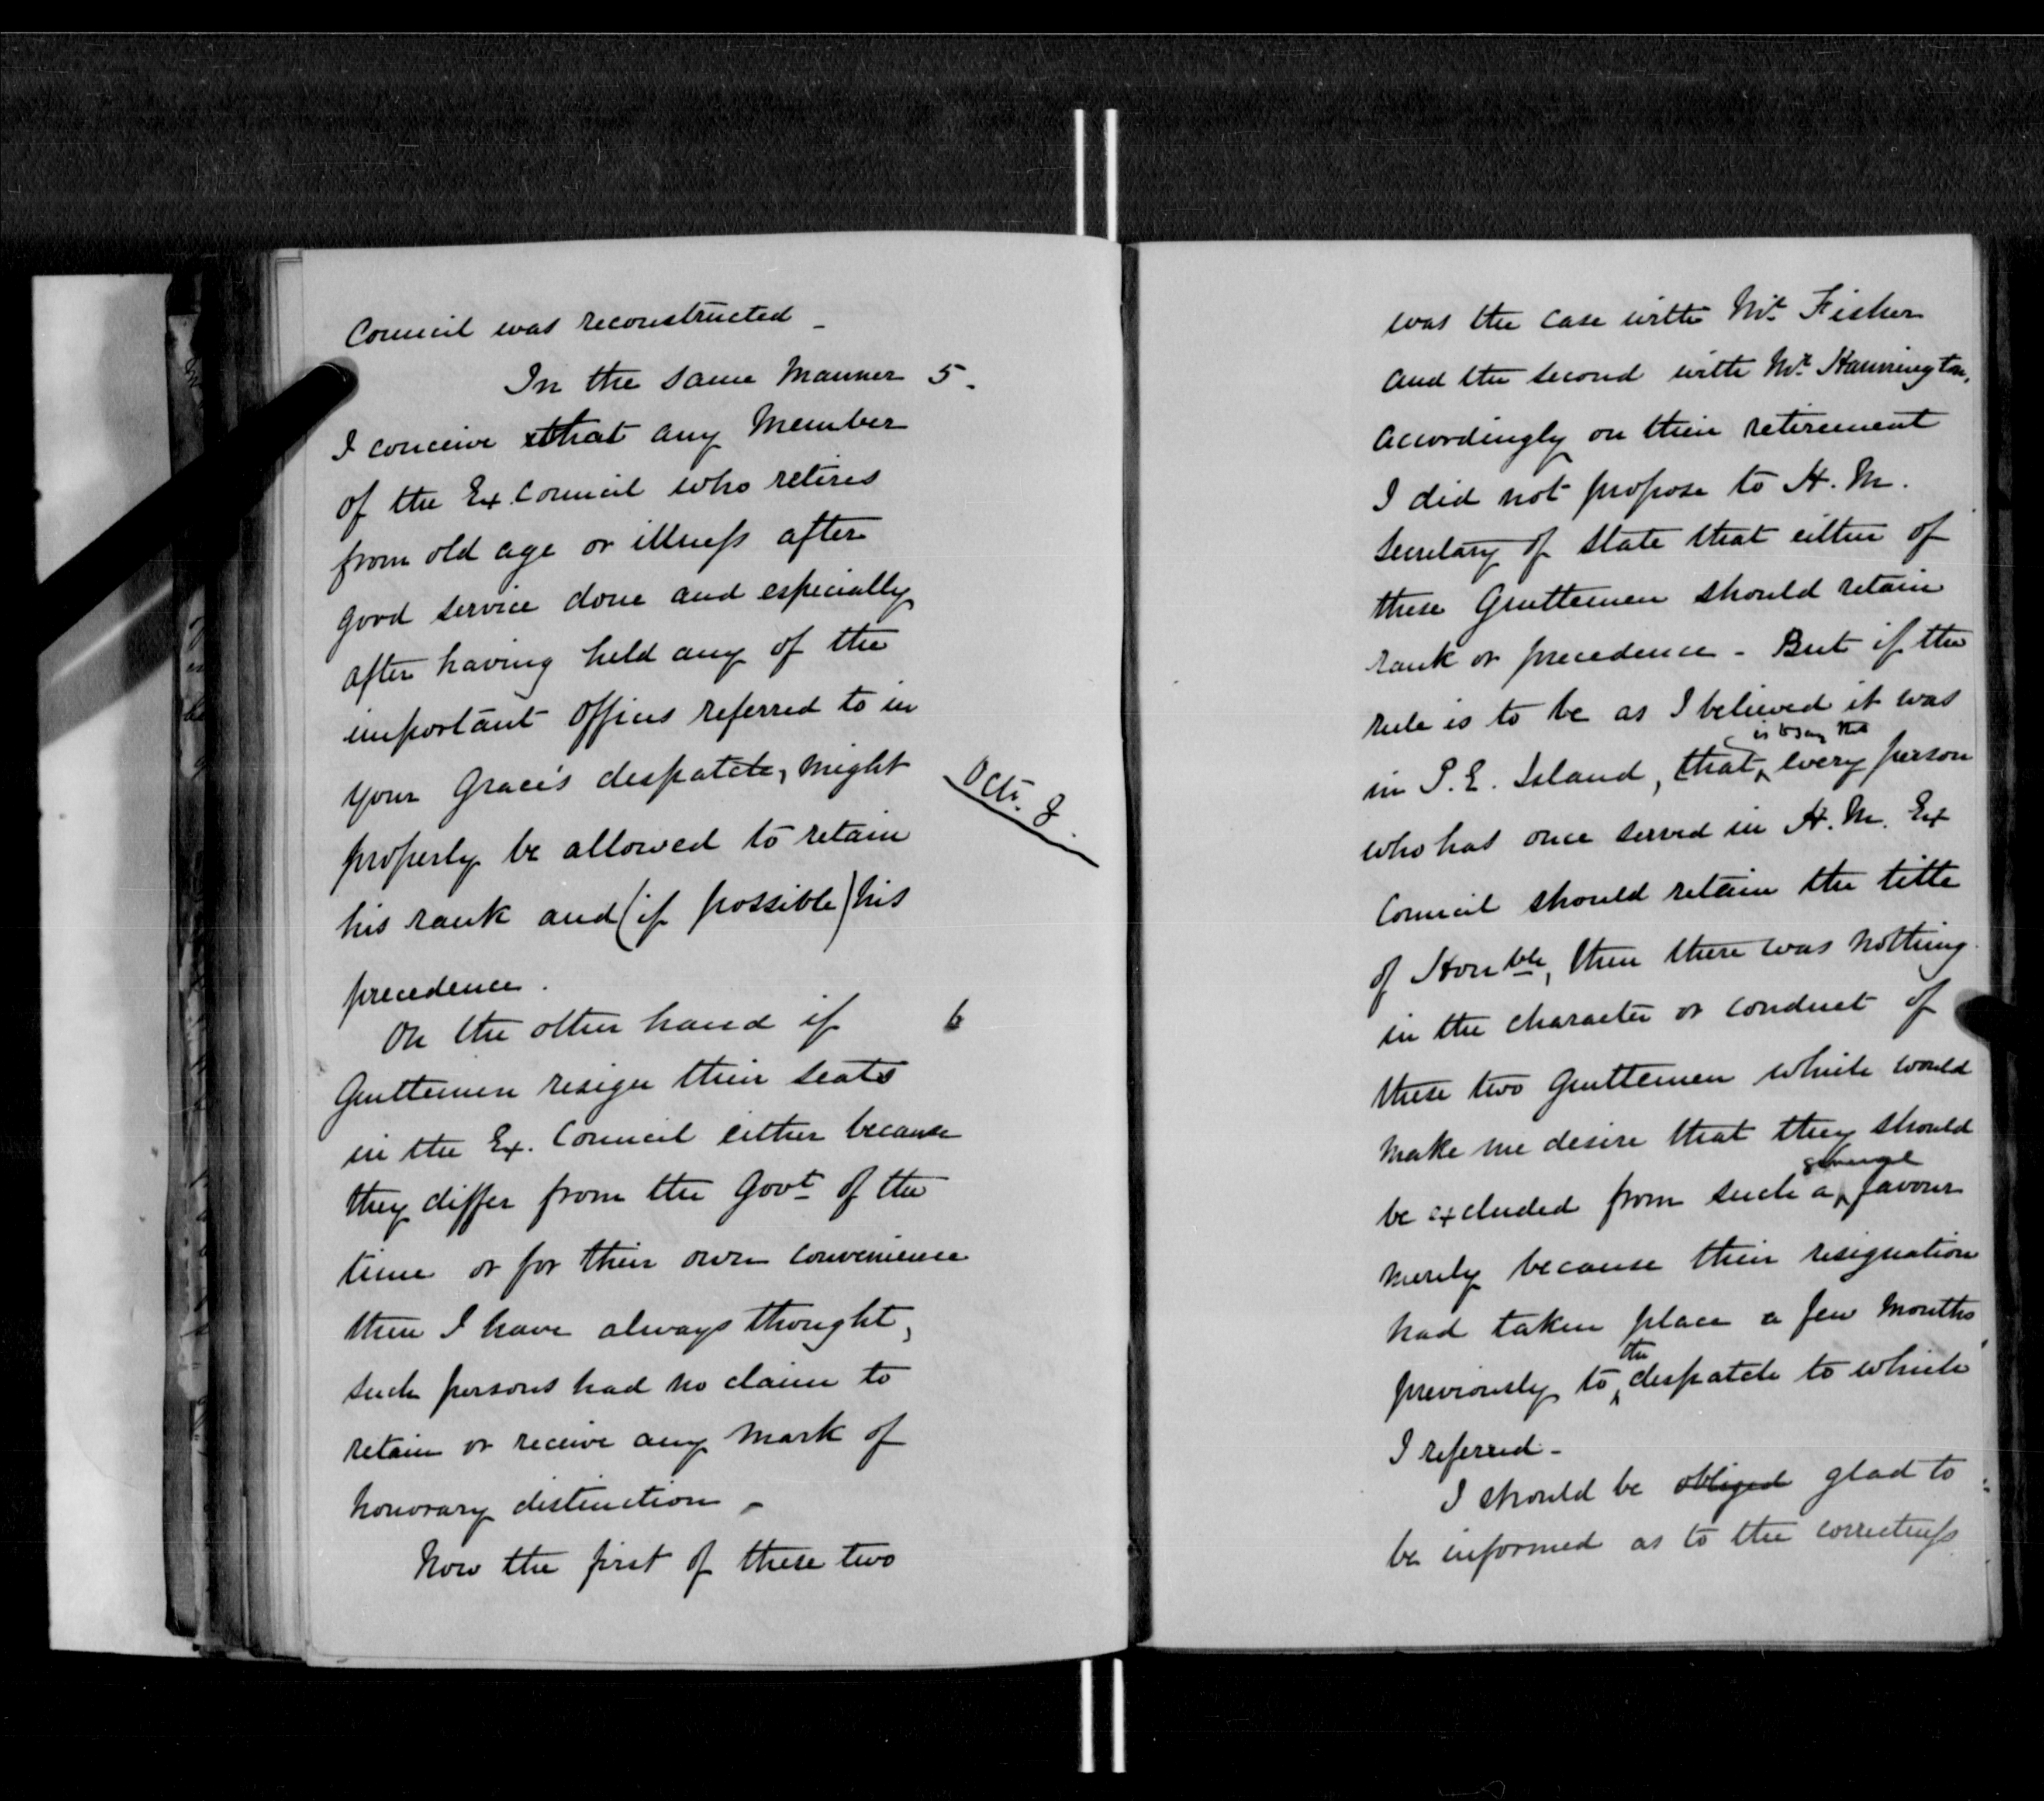 Council was reconstructed _
In the same Manner 5.
I conceive that any Member
of the Ex. Council who retires
from old age or illness after
good service done and especially
after having held any of the
important offices referred to in
your Grace's despatch, might
Octr. 8.
properly be allowed to retain
his rank and (if possible) his
precedence.
On the other hand if 6
Gentlemen resign their seats
in the Ex. Council either because
they differ from the Govt of the
time or for their own convenience
then I have always thought,
such persons had no claim to
retain or receive any mark of
honorary distinction -
Now the first of these two
was the case with Mr. Fisher
and the second with Mr. Hannington.
Accordingly on their retirement
I did not propose to H. M.
Secretary of State that either of
these Gentlemen should retain
rank or precedence - But if the
rule is to be as I believed it was
is to say that
in P. E. Island, that every person
who has once served in H. M. Ex
Council should retain the title
of Honble, then there was nothing
in the character or conduct of
these two gentlemen which would
make me desire that they should
be excluded from such a favour
merely because their resignation
had taken place a few months
the
previously to despatch to which
I referred -
I should be obliged glad to
be informed as to the correctness